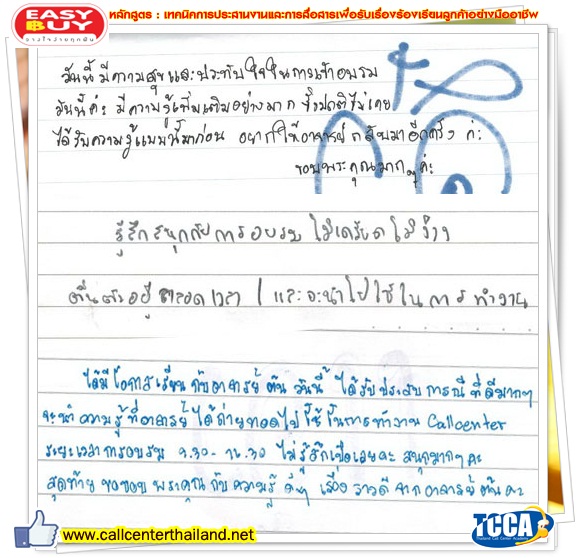 EASY BUY
บางใจง่ายทุกเมื่อ
หลักสูตร : เทคนิคการประสานงานและการสื่อสารเพื่อรับเรื่องร้องเรียนลูกค้าอย่างมืออาชีพ
วันนี้มีความสุขและประทับใจในการเข้าอบรม
วันนี้ค่ะ มีความรู้เพิ่มเติมอย่างมาก ซึ่งปกติไม่เคย
ได้รับความรู้แบบนี้มาก่อน อยากให้อาจารย์กลับมาอีกครั้ง ค่ะ
ขอบพระคุณมากๆค่ะ
รู้สึกสนุกกับการอบรม ไม่เครียด ไม่ง่วง
ตื่นตัวอยู่ตลอดเวลา และจะนำไปใช้ในการทำงาน
ได้มีโอกาสเรียนกับอาจารย์ต้น วันนี้ ได้รับประสบการณ์ที่ดีมากๆ
จะนำความรู้ที่อาจารย์ได้ถ่ายทอดไปใช้ในการทำงาน Callcenter
ระยะเวลาการอบรม 9.30-16.30 ไม่รู้สึกเบื่อเลยคะ สนุกมากๆคะ
สุดท้าย ขอขอบพระคุณกับความรู้ดีๆ เรื่องราวดี จากอาจารย์ต้นคะ
www.callcenterthailand.net
TCCA
Thailand Call Center Academy